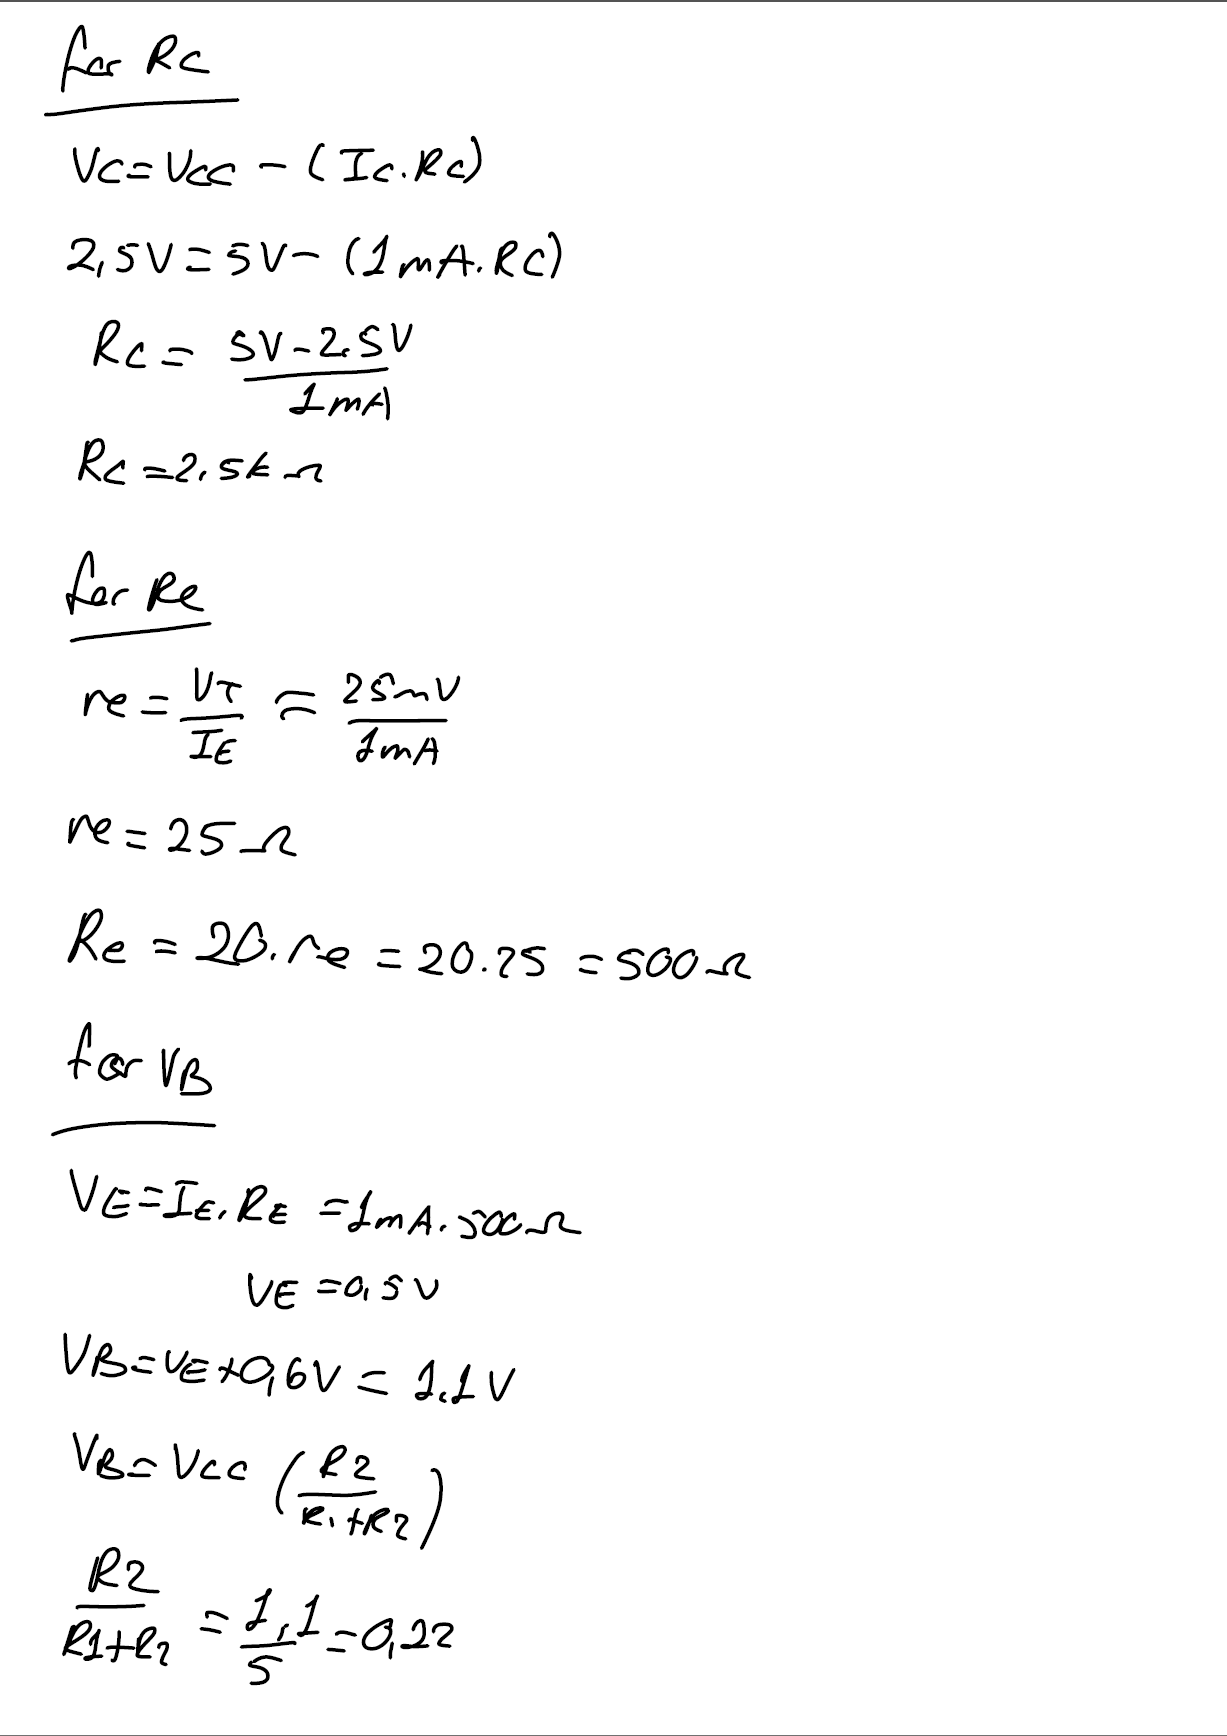 for RC
VC = VCC - (Ic.Rc)
2,5V = 5V - (1mA.RC)
RC = 5V-2.5V / 1mA
RC = 2,5kΩ
for Re
re = VT / IE = 25mV / 1mA
re = 25Ω
Re = 20.re = 20.25 = 500Ω
for VB
VE = IE.RE = 1mA.500Ω
VE = 0,5V
VB = VE+0,6V = 1.1V
VB = VCC (R2 / R1+R2)
R2 / R1+R2 = 1,1 / 5 = 0,22